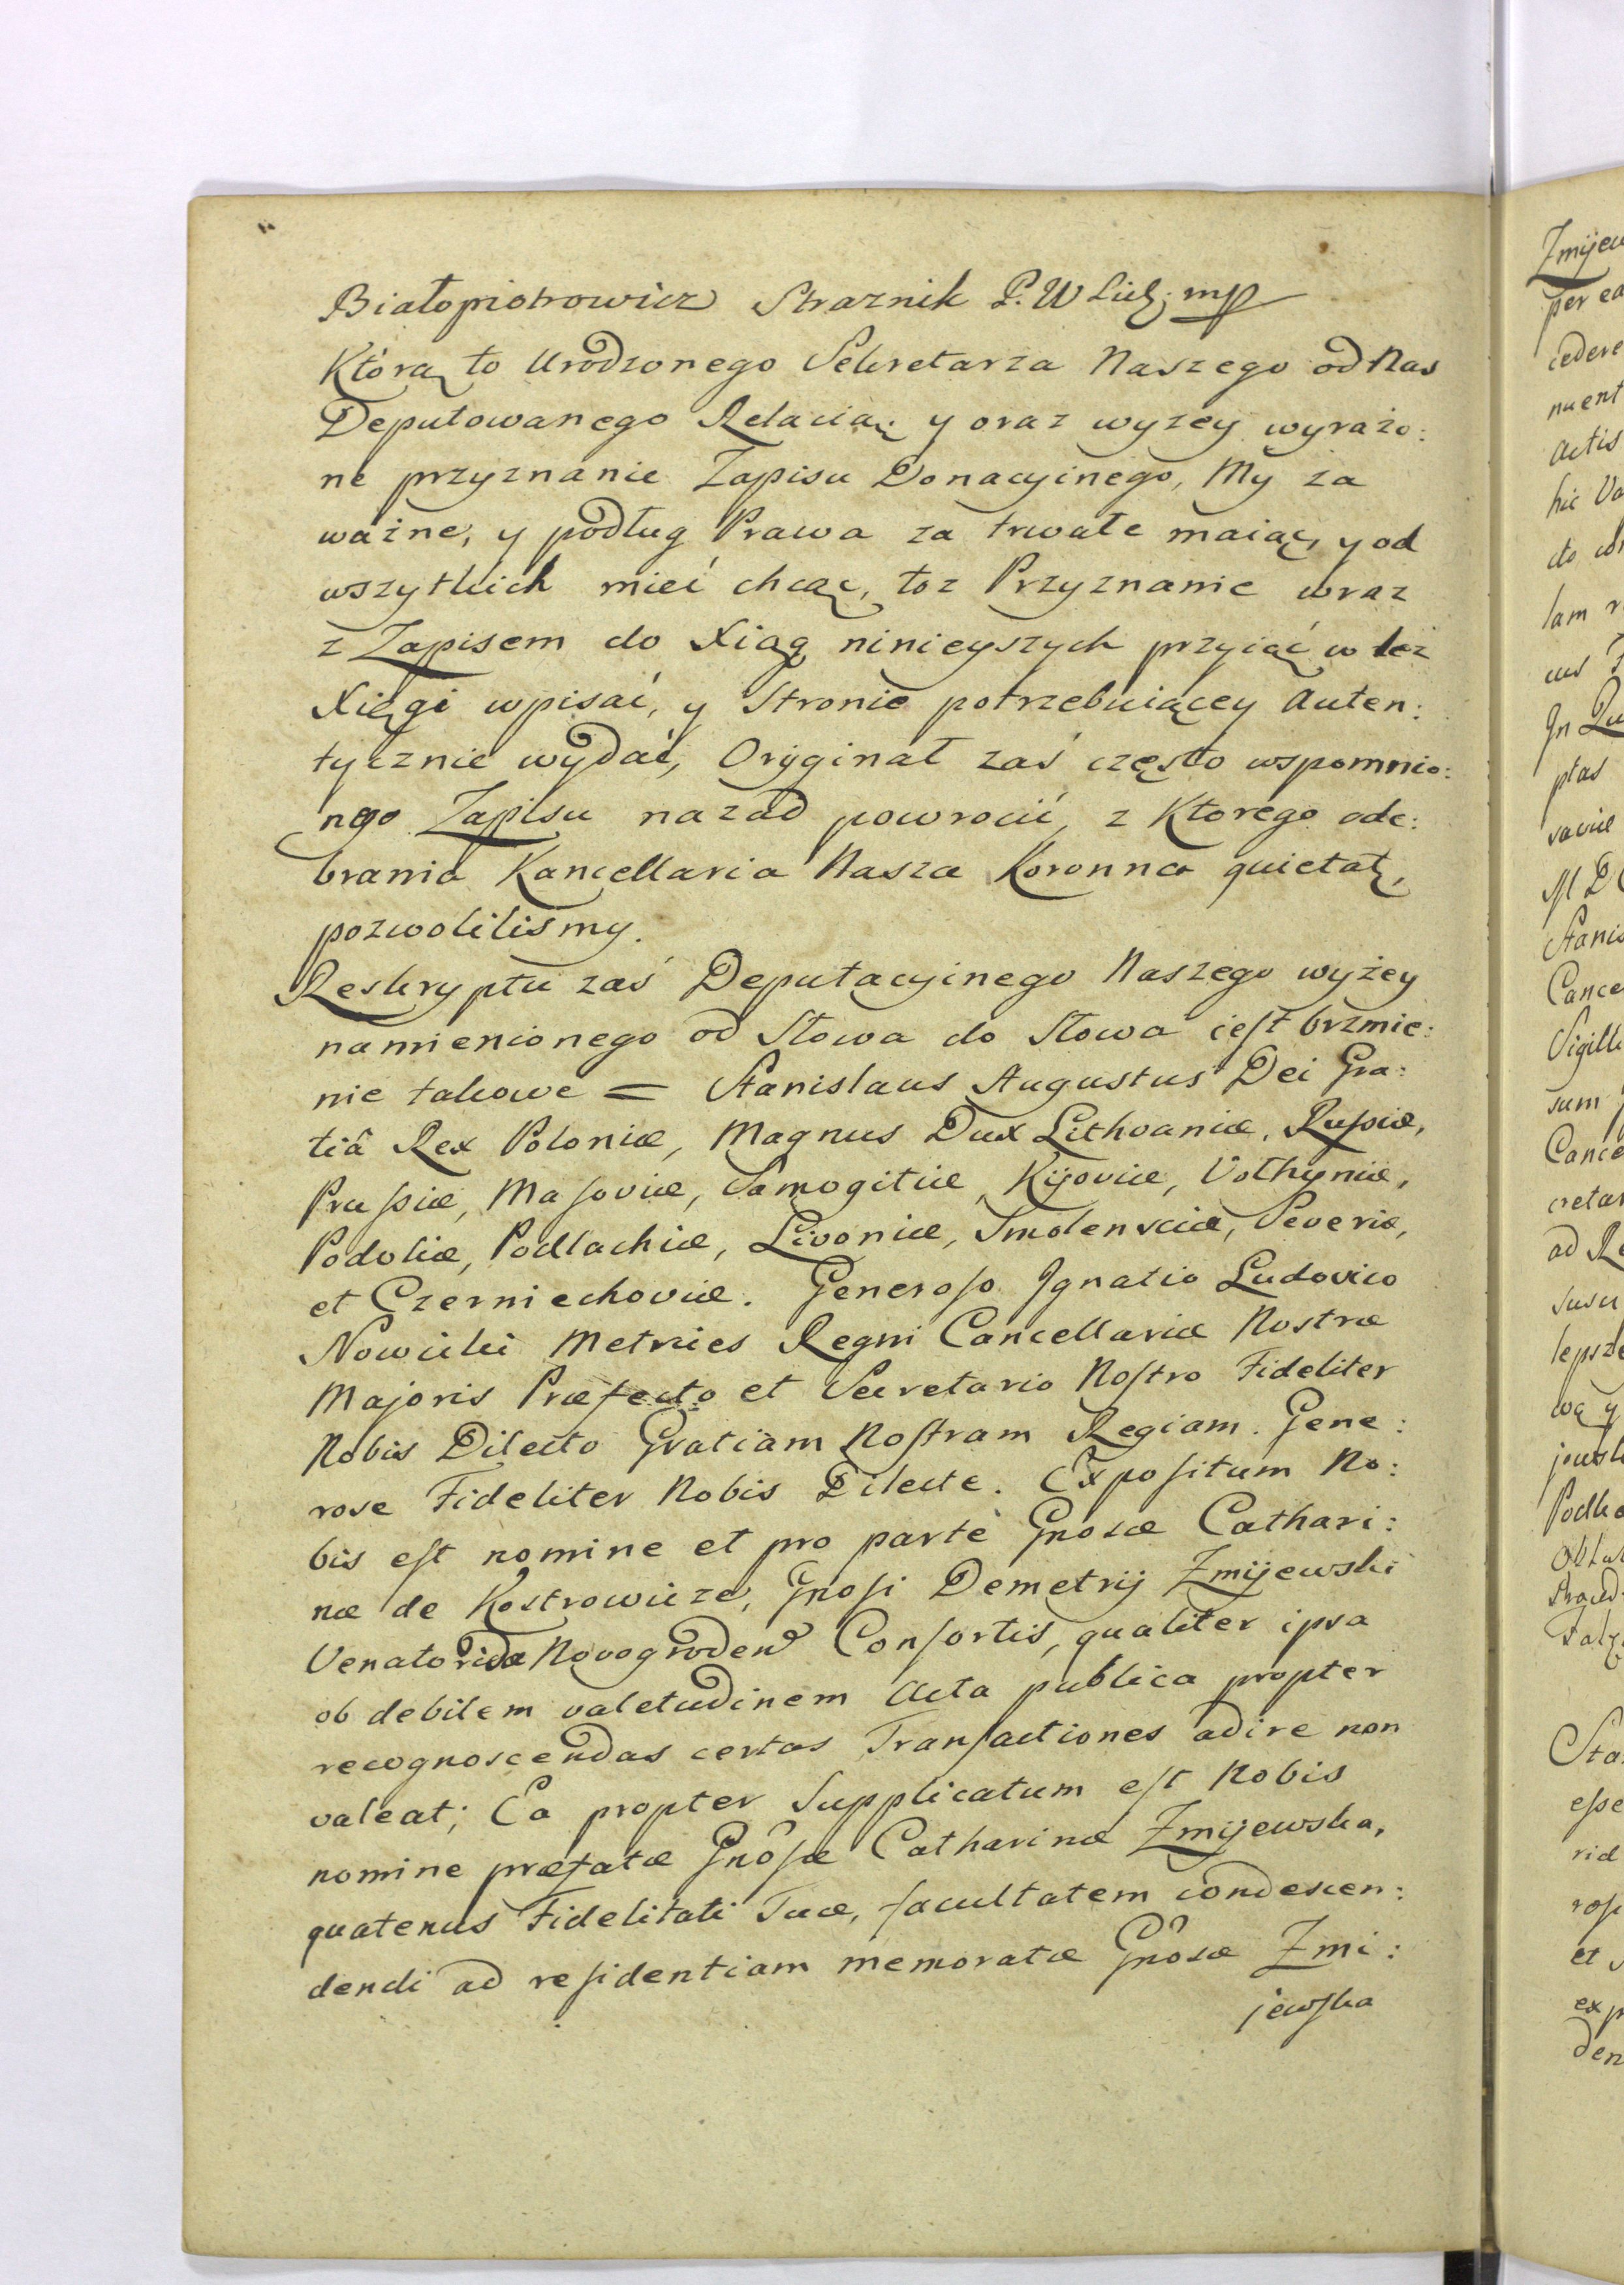 Białopiotrowicz Straznik P. W Lid: mp
Którą to Urodzonego Sekretarza Naszego od Nas
Deputowanego Relacią y oraz wyżey wyrażo:
ne przyznanie Zapisu Donacyinego, My za
ważne, y podług Prawa za trwałe maiąc, y od
wszytkich mieć chcąc, toż Przyznanie wraz
z Zapisem do Xiąg ninieyszych przyiąć w też
Xięgi wpisać, y Stronie potrzebuiącey Auten:
tycznie wydać, Oryginał zaś często wspomnio:
nego Zapisu nazad powrocić, z Ktorego ode:
brania Kancellaria Nasza Koronna quietat,
pozwolilismy.
Reskryptu zaś Deputacyinego Naszego wyżey
namienionego od Słowa do Słowa ieſt brzmie:
nie takowe = Stanislaus Augustus Dei Gra:
tiâ Rex Poloniæ, Magnus Dux Lithvaniæ, Ruſsiæ,
Pruſsiæ, Maſoviæ, Samogitiæ, Kijoviæ, Volhyniæ,
Podoliæ, Podlachiæ, Livoniæ, Smolensciæ, Severiæ,
et Czerniechoviæ. Generoſo Ignatio Ludovico
Nowicki Metrices Regni Cancellariæ Nostræ
Majoris Præfecto et Secretario Noſtro Fideliter
Nobis Dilecto Gratiam Noſtram Regiam. Gene:
rose Fideliter Nobis Dilecte. Expoſitum No:
bis eſt nomine et pro parte Gnosæ Cathari:
næ de Kostrowicze, Gnoſi Demetrij Zmijewski
Venatoridæ Novogroden Conſortis, qualiter ipsa
ob debilem valetudinem Acta publica propter
recognoscendas certas Tranſactiones adire non
valeat; Ea propter Supplicatum eſt Nobis
nomine præfatæ Gnôſæ Catharinæ Zmijewska,
quatenus Fidelitati Tuæ, facultatem condescen:
dendi ad reſidentiam memoratæ Gnôsæ Zmi:
jewſka
Zmijew
per ea
cedere
nuent
Actis
hic Va
lam
In Qu
ptas
Stanis
Cance
Sigill
sum
Cance
cretar
ad Re
lepsze
wą y
Sta
eſse
et
ex p
den